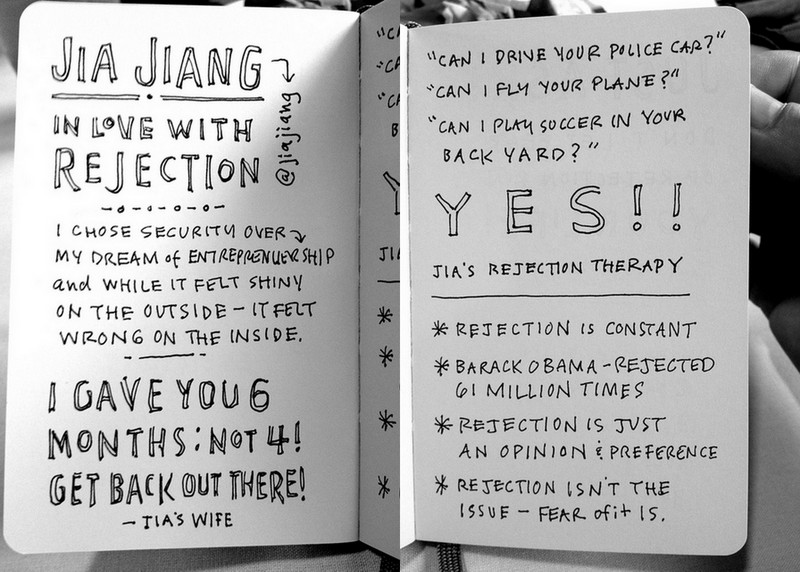 JIA JIANG
@jiajiang
IN LOVE WITH
REJECTION
I CHOSE SECURITY OVER
MY DREAM of ENTREPRENUERSHIP
and WHILE IT FELT SHINY
ON THE OUTSIDE - IT FELT
WRONG ON THE INSIDE.
I GAVE YOU 6
MONTHS: NOT 4!
GET BACK OUT THERE!
- JIA'S WIFE
"CAN I DRIVE YOUR POLICE CAR?"
"CAN I FLY YOUR PLANE?"
"CAN I PLAY SOCCER IN YOUR
BACK YARD?"
YES!!
JIA'S REJECTION THERAPY
* REJECTION IS CONSTANT
* BARACK OBAMA - REJECTED
61 MILLION TIMES
* REJECTION IS JUST
AN OPINION & PREFERENCE
* REJECTION ISN'T THE
ISSUE - FEAR of it IS.